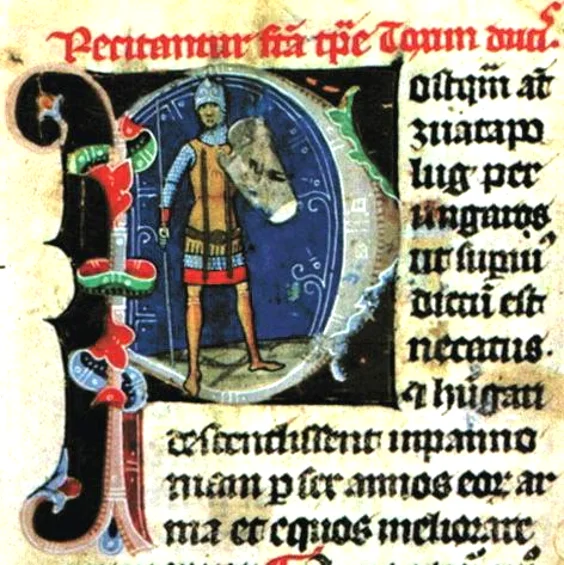 Recitantur sc̄a tp̄e Toxun duc̄.
ostq̄m at̄
zuatapo
lug per
ungaros
ut sup̄ui'
dictū est
necatus.
⁊ hūgari
descendissent in panno
niam ꝑ sex annos eoꝝ ar
ma et equos meliorare